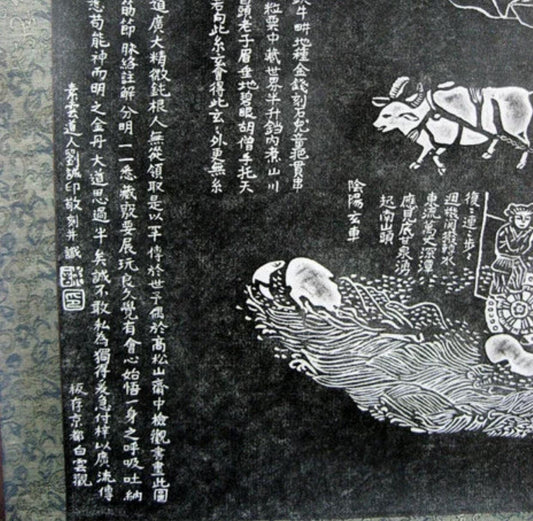 復〻連〻步〻
週機關撥轉水
東流萬丈深潭
應見底甘泉湧
起南山頭
陰陽玄車
牛耕地種金錢刻石兒童把貫串
粒粟中藏世界半升鐺內煮山川
頭老子眉垂地碧眼胡僧手托天
若向此玄玄會得此玄玄外更無玄
道廣大精微鈍根人無從領取是以罕傳於世予偶於高松山齋中檢觀書畫此圖
筋節脉絡註解分明一一悉藏竅要展玩良久覺有會心始悟一身之呼吸吐納
息苟能神而明之金丹大道思過半矣誠不敢私為獨得爰急付梓以廣流傳
素雲道人劉誠印敬刻并識
板存京都白雲觀